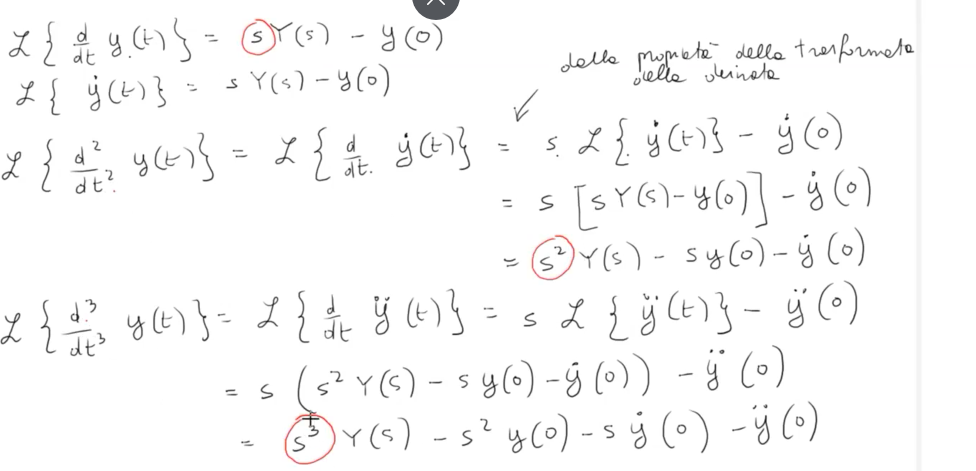 ℒ{d/dt y(t)} = s Y(s) - y(0)
ℒ{ẏ(t)} = s Y(s) - y(0)
dalla proprietà della trasformata
della derivata
ℒ{d²/dt² y(t)} = ℒ{d/dt ẏ(t)} = s ℒ{ẏ(t)} - ẏ(0)
= s [s Y(s) - y(0)] - ẏ(0)
= s² Y(s) - s y(0) - ẏ(0)
ℒ{d³/dt³ y(t)} = ℒ{d/dt ÿ(t)} = s ℒ{ÿ(t)} - ÿ(0)
= s (s² Y(s) - s y(0) - ẏ(0)) - ÿ(0)
= s³ Y(s) - s² y(0) - s ẏ(0) - ÿ(0)